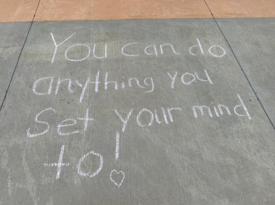 You can do
anything you
Set your mind
to!